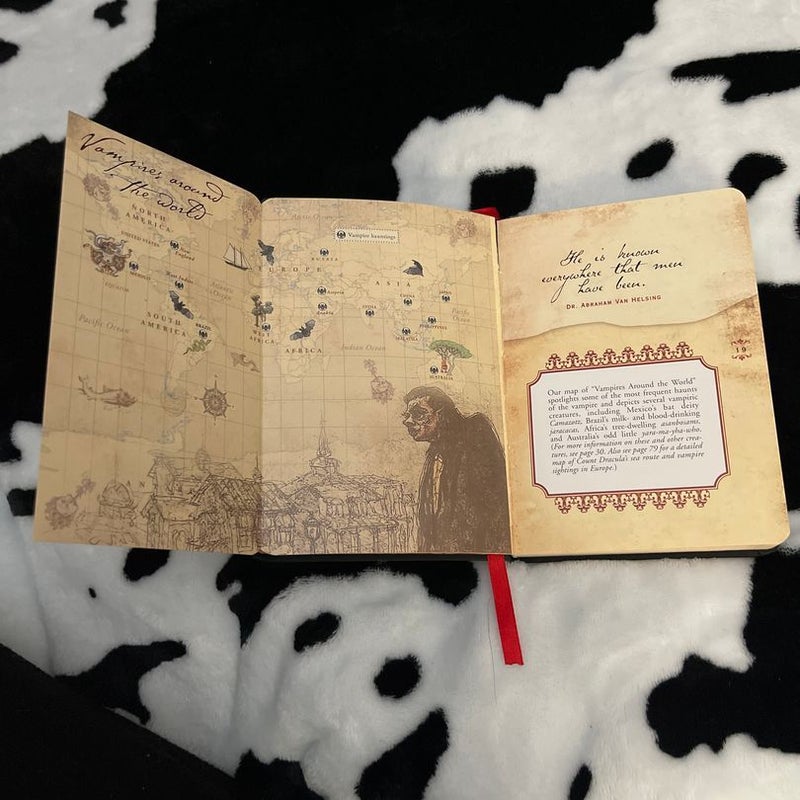 Vampires around
the world
NORTH
AMERICA
UNITED STATES
England
West Indies
Atlantic
Ocean
EQUATOR
Pacific Ocean
SOUTH
AMERICA
BRAZIL
Arctic Ocean
Vampire hauntings
RUSSIA
EUROPE
ASIA
CHINA
JAPAN
INDIA
Pacific
Ocean
PHILIPPINES
MALAYSIA
WEST
AFRICA
AFRICA
Indian Ocean
AUSTRALIA
He is known
everywhere that men
have been.
DR. ABRAHAM VAN HELSING
19
Our map of “Vampires Around the World”
spotlights some of the most frequent haunts
of the vampire and depicts several vampiric
creatures, including Mexico's bat deity
Camazotz, Brazil's milk- and blood-drinking
jaracacas, Africa's tree-dwelling asanbosams,
and Australia's odd little yara-ma-yha-who.
(For more information on these and other crea-
tures, see page 30. Also see page 79 for a detailed
map of Count Dracula's sea route and vampire
sightings in Europe.)